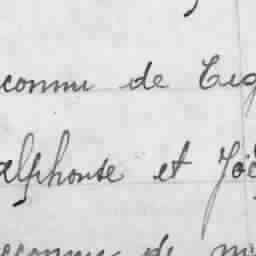 connu de Eug
alphonse et Joë
reconnu de m